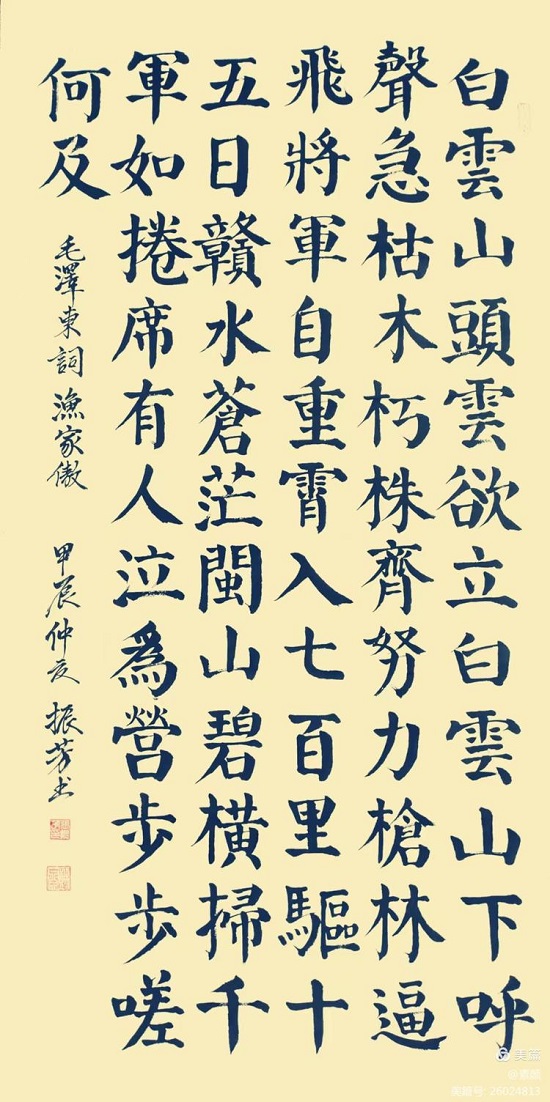 白雲山頭雲欲立白雲山下呼
聲急枯木朽株齊努力槍林逼
飛將軍自重霄入七百里驅十
五日贛水蒼茫閩山碧橫掃千
軍如捲席有人泣爲營步步嗟
何及
毛澤東詞 漁家傲 甲辰仲夏 振芳书
美篇
美篇号: 26024813